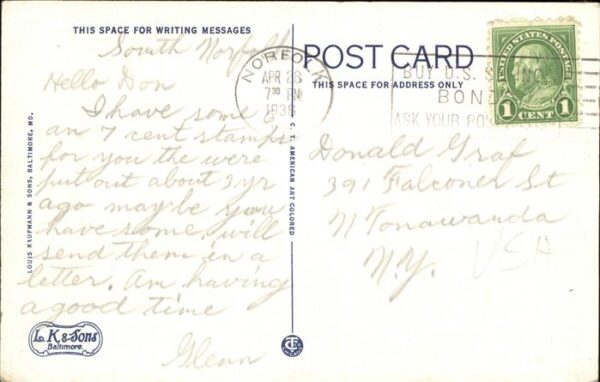 THIS SPACE FOR WRITING MESSAGES
South Norfolk
Hello Don
I have some 6
an 7 cent stamps
for you the were
put out about 2 yr
ago maybe you
have some. will
send them in a
letter. Am having
a good time
Glenn
LOUIS KAUFMANN & SONS, BALTIMORE, MD.
L. K. & Sons
Baltimore
C. T. AMERICAN ART COLORED
POST CARD
THIS SPACE FOR ADDRESS ONLY
NORFOLK
APR 26
7 30 PM
BUY U.S. SAVINGS
BONDS
ASK YOUR POSTMASTER
UNITED STATES POSTAGE
1 CENT 1
Donald Graf
391 Falconer St
N Tonawanda
N.Y.
USA